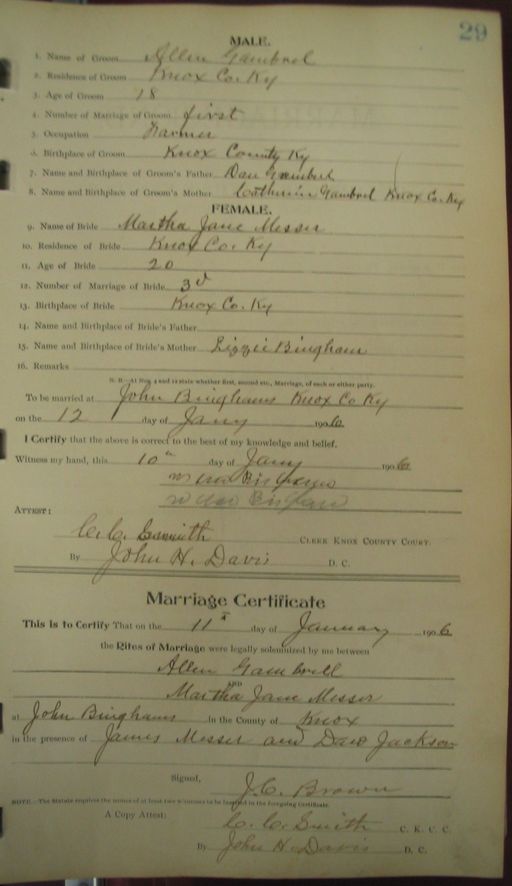 29
MALE.
1. Name of Groom Allen Gambrel
2. Residence of Groom Knox Co. Ky
3. Age of Groom 18
4. Number of Marriage of Groom first
5. Occupation Farmer
6. Birthplace of Groom Knox County Ky
7. Name and Birthplace of Groom's Father Dan Gambrel
8. Name and Birthplace of Groom's Mother Catherin Gambrel Knox Co. Ky
FEMALE.
9. Name of Bride Martha Jane Messer
10. Residence of Bride Knox Co. Ky
11. Age of Bride 20
12. Number of Marriage of Bride 3d
13. Birthplace of Bride Knox Co. Ky
14. Name and Birthplace of Bride's Father
15. Name and Birthplace of Bride's Mother Lizzie Bingham
16. Remarks
N. B.—At Nos. 4 and 12 state whether first, second etc., Marriage, of each or either party.
To be married at John Binghams Knox Co Ky
on the 12 day of Jany 1906
I Certify that the above is correct to the best of my knowledge and belief.
Witness my hand, this 10th day of Jany 1906
ATTEST:
C. C. Smith CLERK KNOX COUNTY COURT.
By John H. Davis D. C.
Marriage Certificate
This is to Certify That on the 11th day of January 1906
the Rites of Marriage were legally solemnized by me between
Allen Gambrell
AND
Martha Jane Messer
at John Binghams in the County of Knox
in the presence of James Messer and Dave Jackson
Signed, J. C. Brown
NOTE.—The Statute requires the names of at least two witnesses to be inserted in the foregoing Certificate.
A Copy Attest: C. C. Smith C. K. C. C.
By John H. Davis D. C.